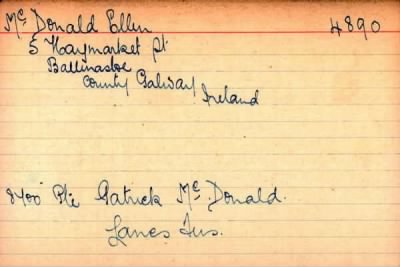 Mc Donald Ellen 4890
5 Haymarket St.
Ballinasloe
County Galway Ireland
8400 Pte Patrick Mc Donald.
Lancs Fus.